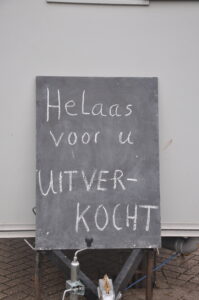 Helaas
voor u
UITVER-
KOCHT